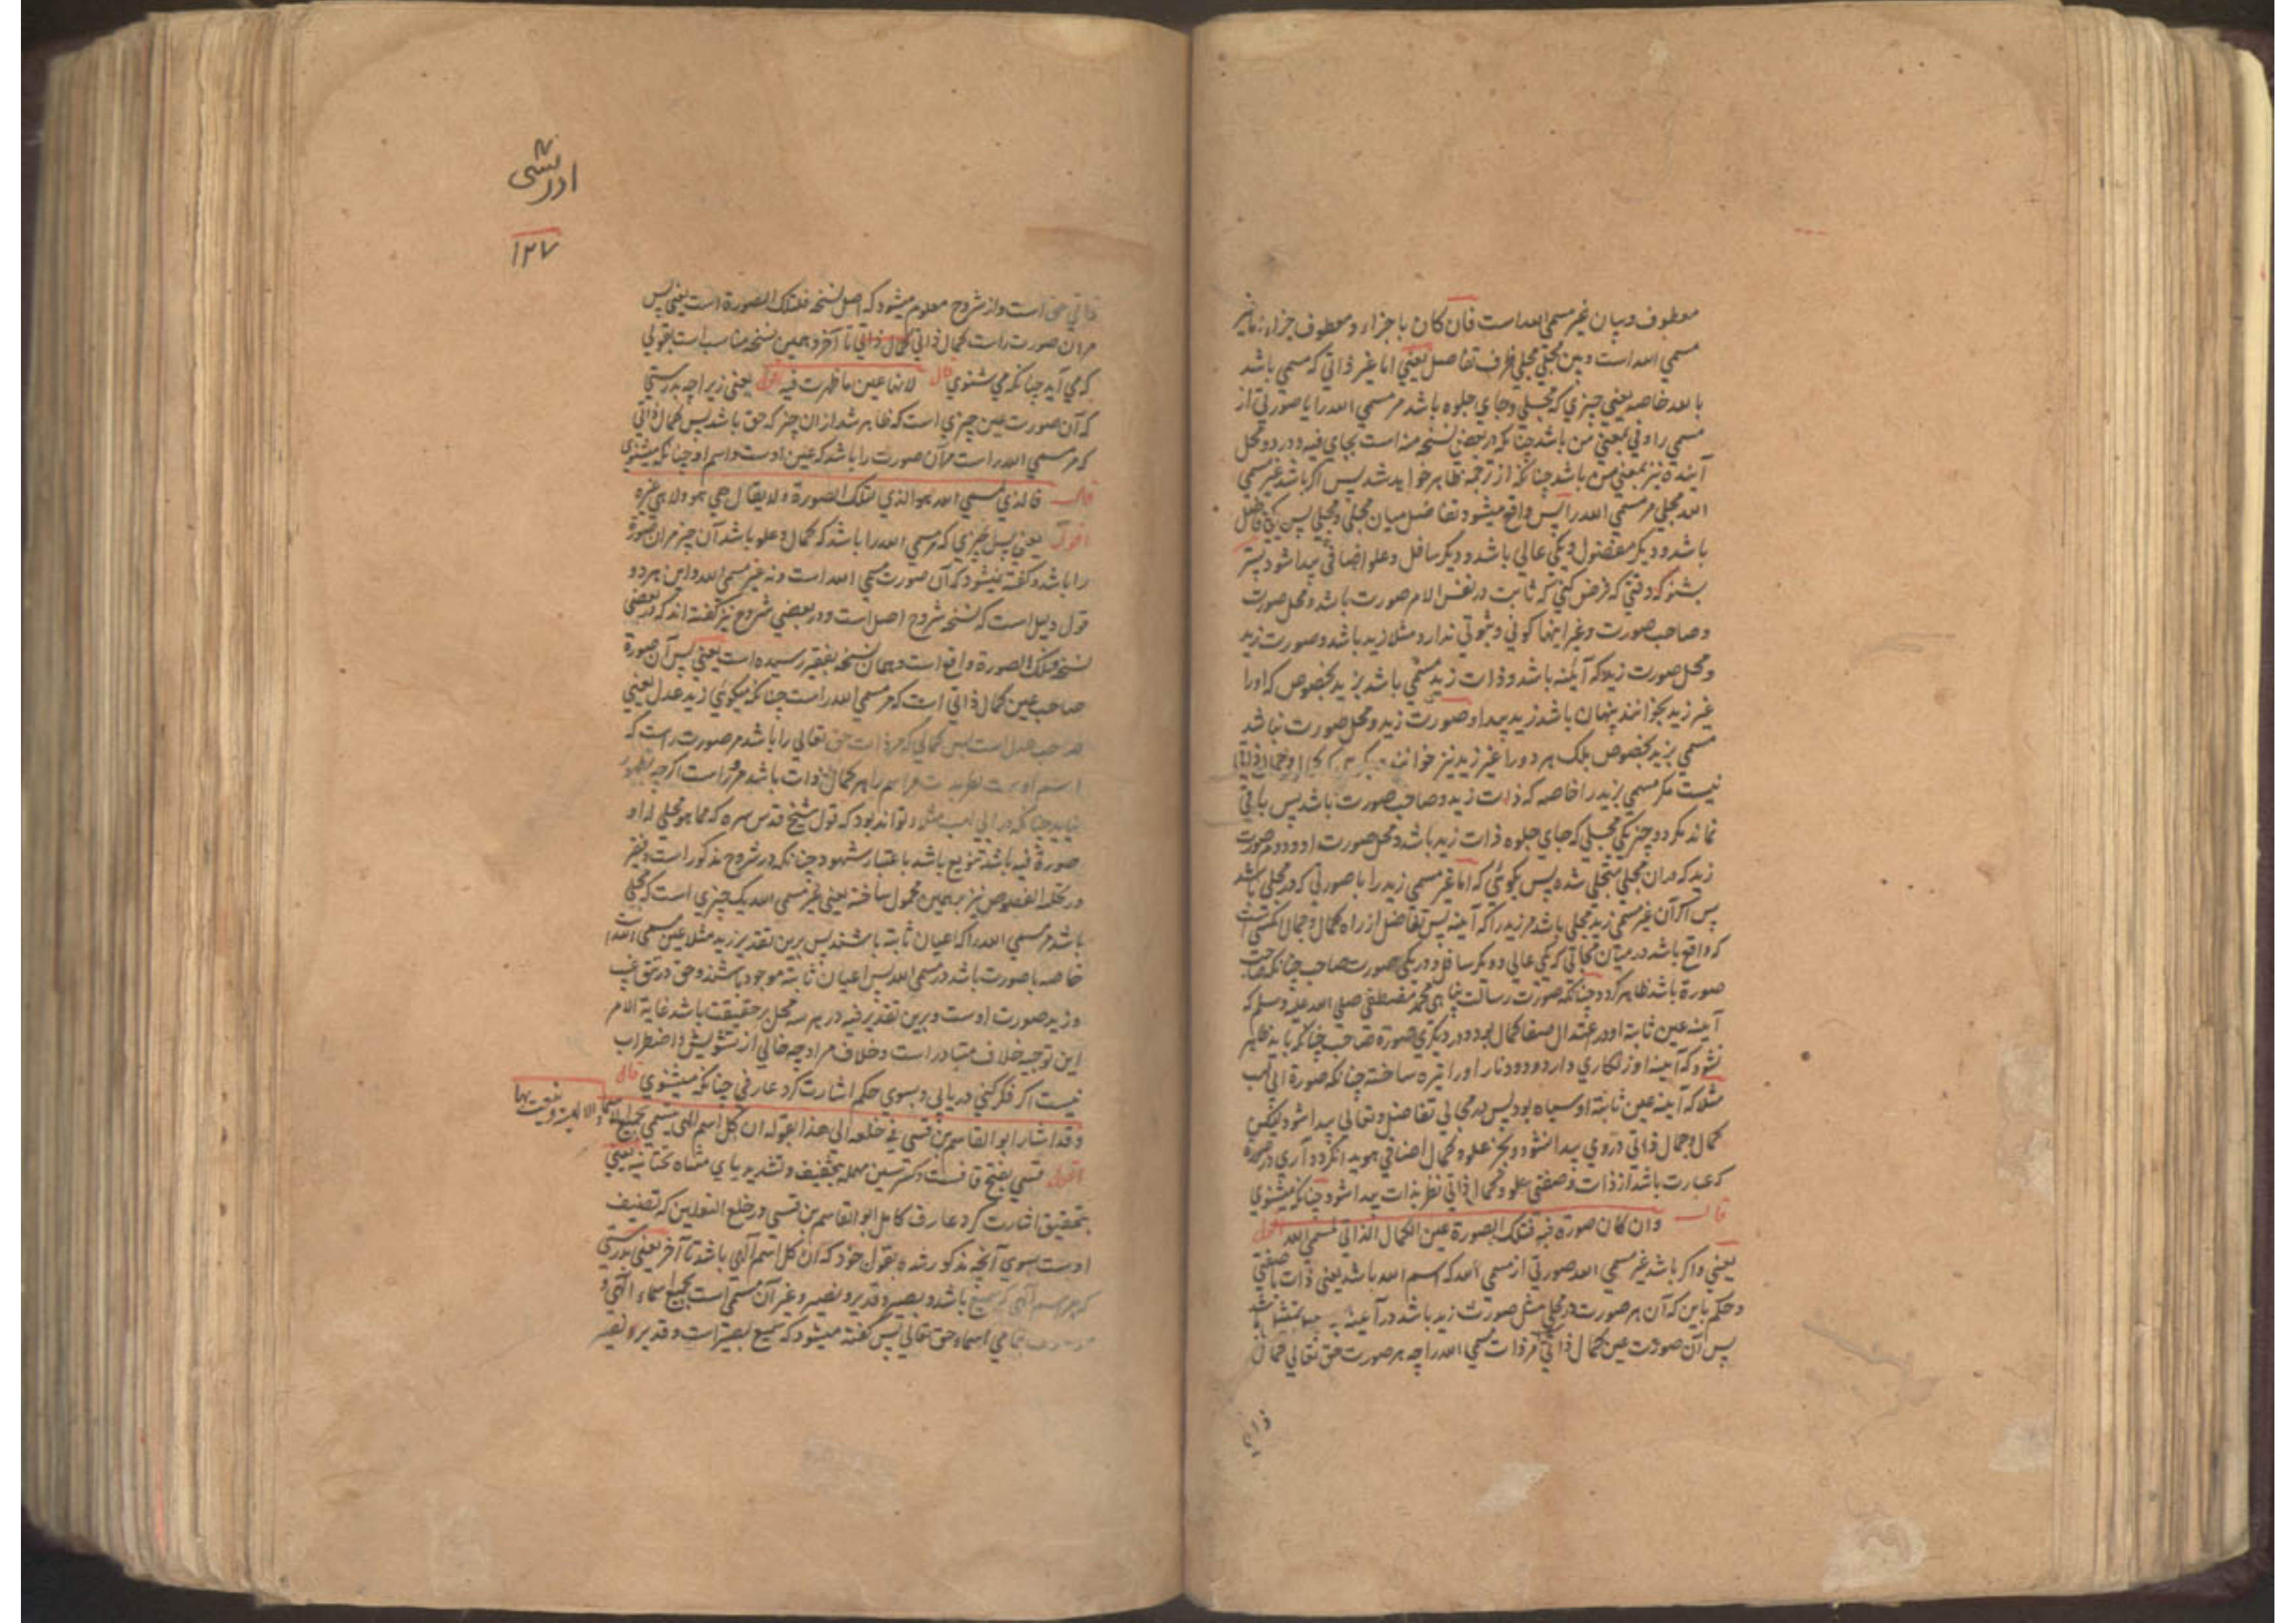 معطوف و بیان غیر مسمی الله است فان کان با جزاء و معطوف جزاء
مسمی الله است و بین مجلی و مجلی ظرف تفاضل یعنی اما غیر ذاتی که مسمی باشد
بالله خاصه یعنی چیزی که مجلی و جای جلوه باشد مر مسمی الله را یا صورتی از
مسمی را و فی بمعنی من باشد چنانکه در بعض نسخه منه است بجای فیه و در دو محل
آینده نیز بمعنی من باشد چنانکه از ترجمه ظاهر خواهد شد پس اگر باشد غیر مسمی
الله مجلی مر مسمی الله را پس واقع میشود تفاضل میان مجلی و مجلی پس یکی فاضل
باشد و دیگر مفضول و یکی عالی باشد و دیگر سافل و علو اضافی پیدا شود
بشنو که وقتی که فرض کنی که ثابت در نفس الامر صورت باشد و محل صورت
و صاحب صورت و غیر اینها کونی و ثبوتی ندارد مثلا زید باشد و صورت زید
و محل صورت زید که آینه باشد و ذات زید مسمی باشد بزید بخصوص که او را
غیر زید بخوانند پنهان باشد زید پیدا و صورت زید و محل صورت نباشد
مسمی بزید بخصوص بلک هر دو را غیر زید نیز خوانند
نیست مکر مسمی بزید را خاصه که ذات زید و صاحب صورت باشد پس باقی
نماند مکر دو چیز یکی مجلی که جای جلوه ذات زید باشد و محل صورت او و دوم صورت
زید که در آن مجلی متجلی شده پس بکوئی که اما غیر مسمی زید را با صورتی که در مجلی باشد
پس اگر آن غیر مسمی زید مجلی باشد مر زید را که آینه پس تفاضل از راه کمال و جمال
که واقع باشد در میان مجالی که یکی عالی و دیگر سافل و در یکی صورت صاحب چنانکه صاحب
صورة باشد ظاهر کردد چنانکه صورت رسالت پناهی محمد مصطفی صلی الله علیه وسلم که
آینه عین ثابته او در اعتدال صفا کمال بود و در دیگری صورة صاحب چنانکه باید ظاهر
نشود که آینه او زنکاری دارد و دود نار او را تیره ساخته چنانکه صورة ابی لهب
مثلا که آینه عین ثابته او سیاه بود پس در مجالی تفاضل و تعالی پیدا شود لیکن
کمال و جمال ذاتی در وی پیدا نشود و بجز علو و کمال اضافی هویدا نکردد آری در صورة
که عبارت باشد از ذات و صفتی علو و کمال ذاتی نظر بذات پیدا شود چنانکه میشنوی
قال وان کان صورة فیه فتلک الصورة عین الکمال الذاتی لمسمی الله اقول
یعنی و اگر باشد غیر مسمی الله صورتی از مسمی الله که اسم الله باشد یعنی ذات با صفتی
و حکم باین که آن هر صورت در مجلی مثل صورت زید باشد در آینه
پس آن صورت عین کمال ذاتی مر ذات مسمی الله را چه هر صورت حق تعالی کمال
ذاتی
ادریسی
۱۲۷
ذاتی حق است و از شروح معلوم میشود که اصل نسخه فلتلک الصورة است یعنی پس
مر آن صورت راست کمال ذاتی کمال ذاتی تا آخر و همین نسخه مناسب است بقولی
که می آید چنانکه می شنوی قال لانها عین ما ظهرت فیه اقول یعنی زیرا چه بدرستی
که آن صورت عین چیزی است که ظاهر شد از ان چیز که حق باشد پس کمال ذاتی
که مر مسمی الله راست مر آن صورت را باشد که عین اوست و اسم او چنانکه میشنوی
قال فالذی لمسمی الله هو الذی لتلک الصورة و لا یقال هی هو ولا هی غیره
اقول یعنی پس چیزی که مر مسمی الله را باشد که کمال و علو باشد آن چیز مر آن صورة
را باشد و گفته نمیشود که آن صورت مسمی الله است و نه غیر مسمی الله و این هر دو
قول دلیل است که نسخه شروح اصل است و در بعضی شروح نیز گفته اند که در بعضی
نسخه فتلک الصورة واقع است و همان نسخه بفقیر رسیده است یعنی پس آن صورة
صاحب عین کمال ذاتی است که مر مسمی الله راست چنانکه میکوئی زید عدل یعنی
صاحب عدل است پس کمالی که مر ذات حق تعالی را باشد مر صورت راست که
اسم اوست نظر بذات مر اسم را هر کمال ذات باشد مر او راست اگر چه بظهور
نیاید چنانکه در ابی لهب مثلا و تواند بود که قول شیخ قدس سره که مما هو مجلی له او
صورة فیه باشد تنویع باشد باعتبار شهود چنانکه در شروح مذکور است و فقیر
در تکلة الفصوص نیز بر همین محمول ساخته یعنی غیر مسمی الله یک چیزی است که مجلی
باشد مر مسمی الله را که اعیان ثابته باشند پس برین تقدیر زید مثلا عین مسمی الله است
خاصه با صورت باشد در مسمی الله پس اعیان ثابته موجود باشند و حق در تتق غیب
و زید صورت اوست و برین تقدیر فیه در هر سه محل بر حقیقت باشد غایة الامر
این توجیه خلاف متبادر است و خلاف مراد چه خالی از تشویش و اضطراب
نیست اگر فکر کنی دریابی و بسوی حکم اشارت کرد عارفی چنانکه میشنوی قال
وقد اشار ابو القاسم بن قسی فی خلعه الی هذا بقوله ان کل اسم الهی یتسمی بجمیع الاسماء الالهیة و ینعت بها
اقول قسی بفتح قافست و کسر سین مهمله بتخفیف و تشدید یای مثناه تحتانیه یعنی
بتحقیق اشارت کرد عارف کامل ابو القاسم بن قسی در خلع النعلین که تصنیف
اوست بسوی آنچه مذکور شده بقول خود که ان کل اسم الهی باشد تا آخر یعنی بدرستی
که هر اسم الهی که سمیع باشد و بصیر و قدیر و نصیر و غیر آن مسمی است بجمیع اسماء الهی و
موصوف بتمامی اسماء حق تعالی پس گفته میشود که سمیع بصیر است و قدیر و نصیر